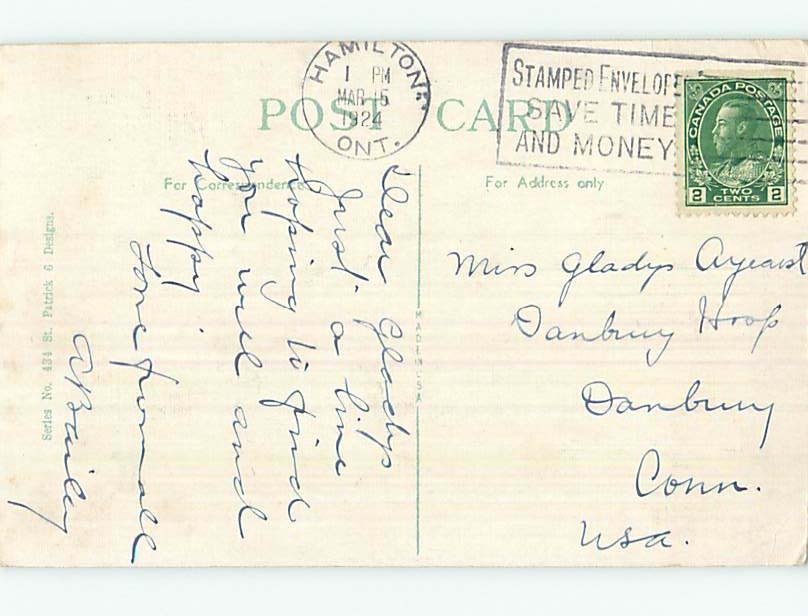 HAMILTON
1 PM
MAR 15
1924
ONT.
STAMPED ENVELOPE
SAVE TIME
AND MONEY
CANADA POSTAGE
2 TWO CENTS 2
POST CARD
For Correspondence
For Address only
Dear Gladys
Just a line
hoping to find
you well and
happy.
Love from all
A Bailey
Miss Gladys
Danbury Hosp
Danbury
Conn.
Usa.
MADE U.S.A.
Series No. 434 St. Patrick 6 Designs.